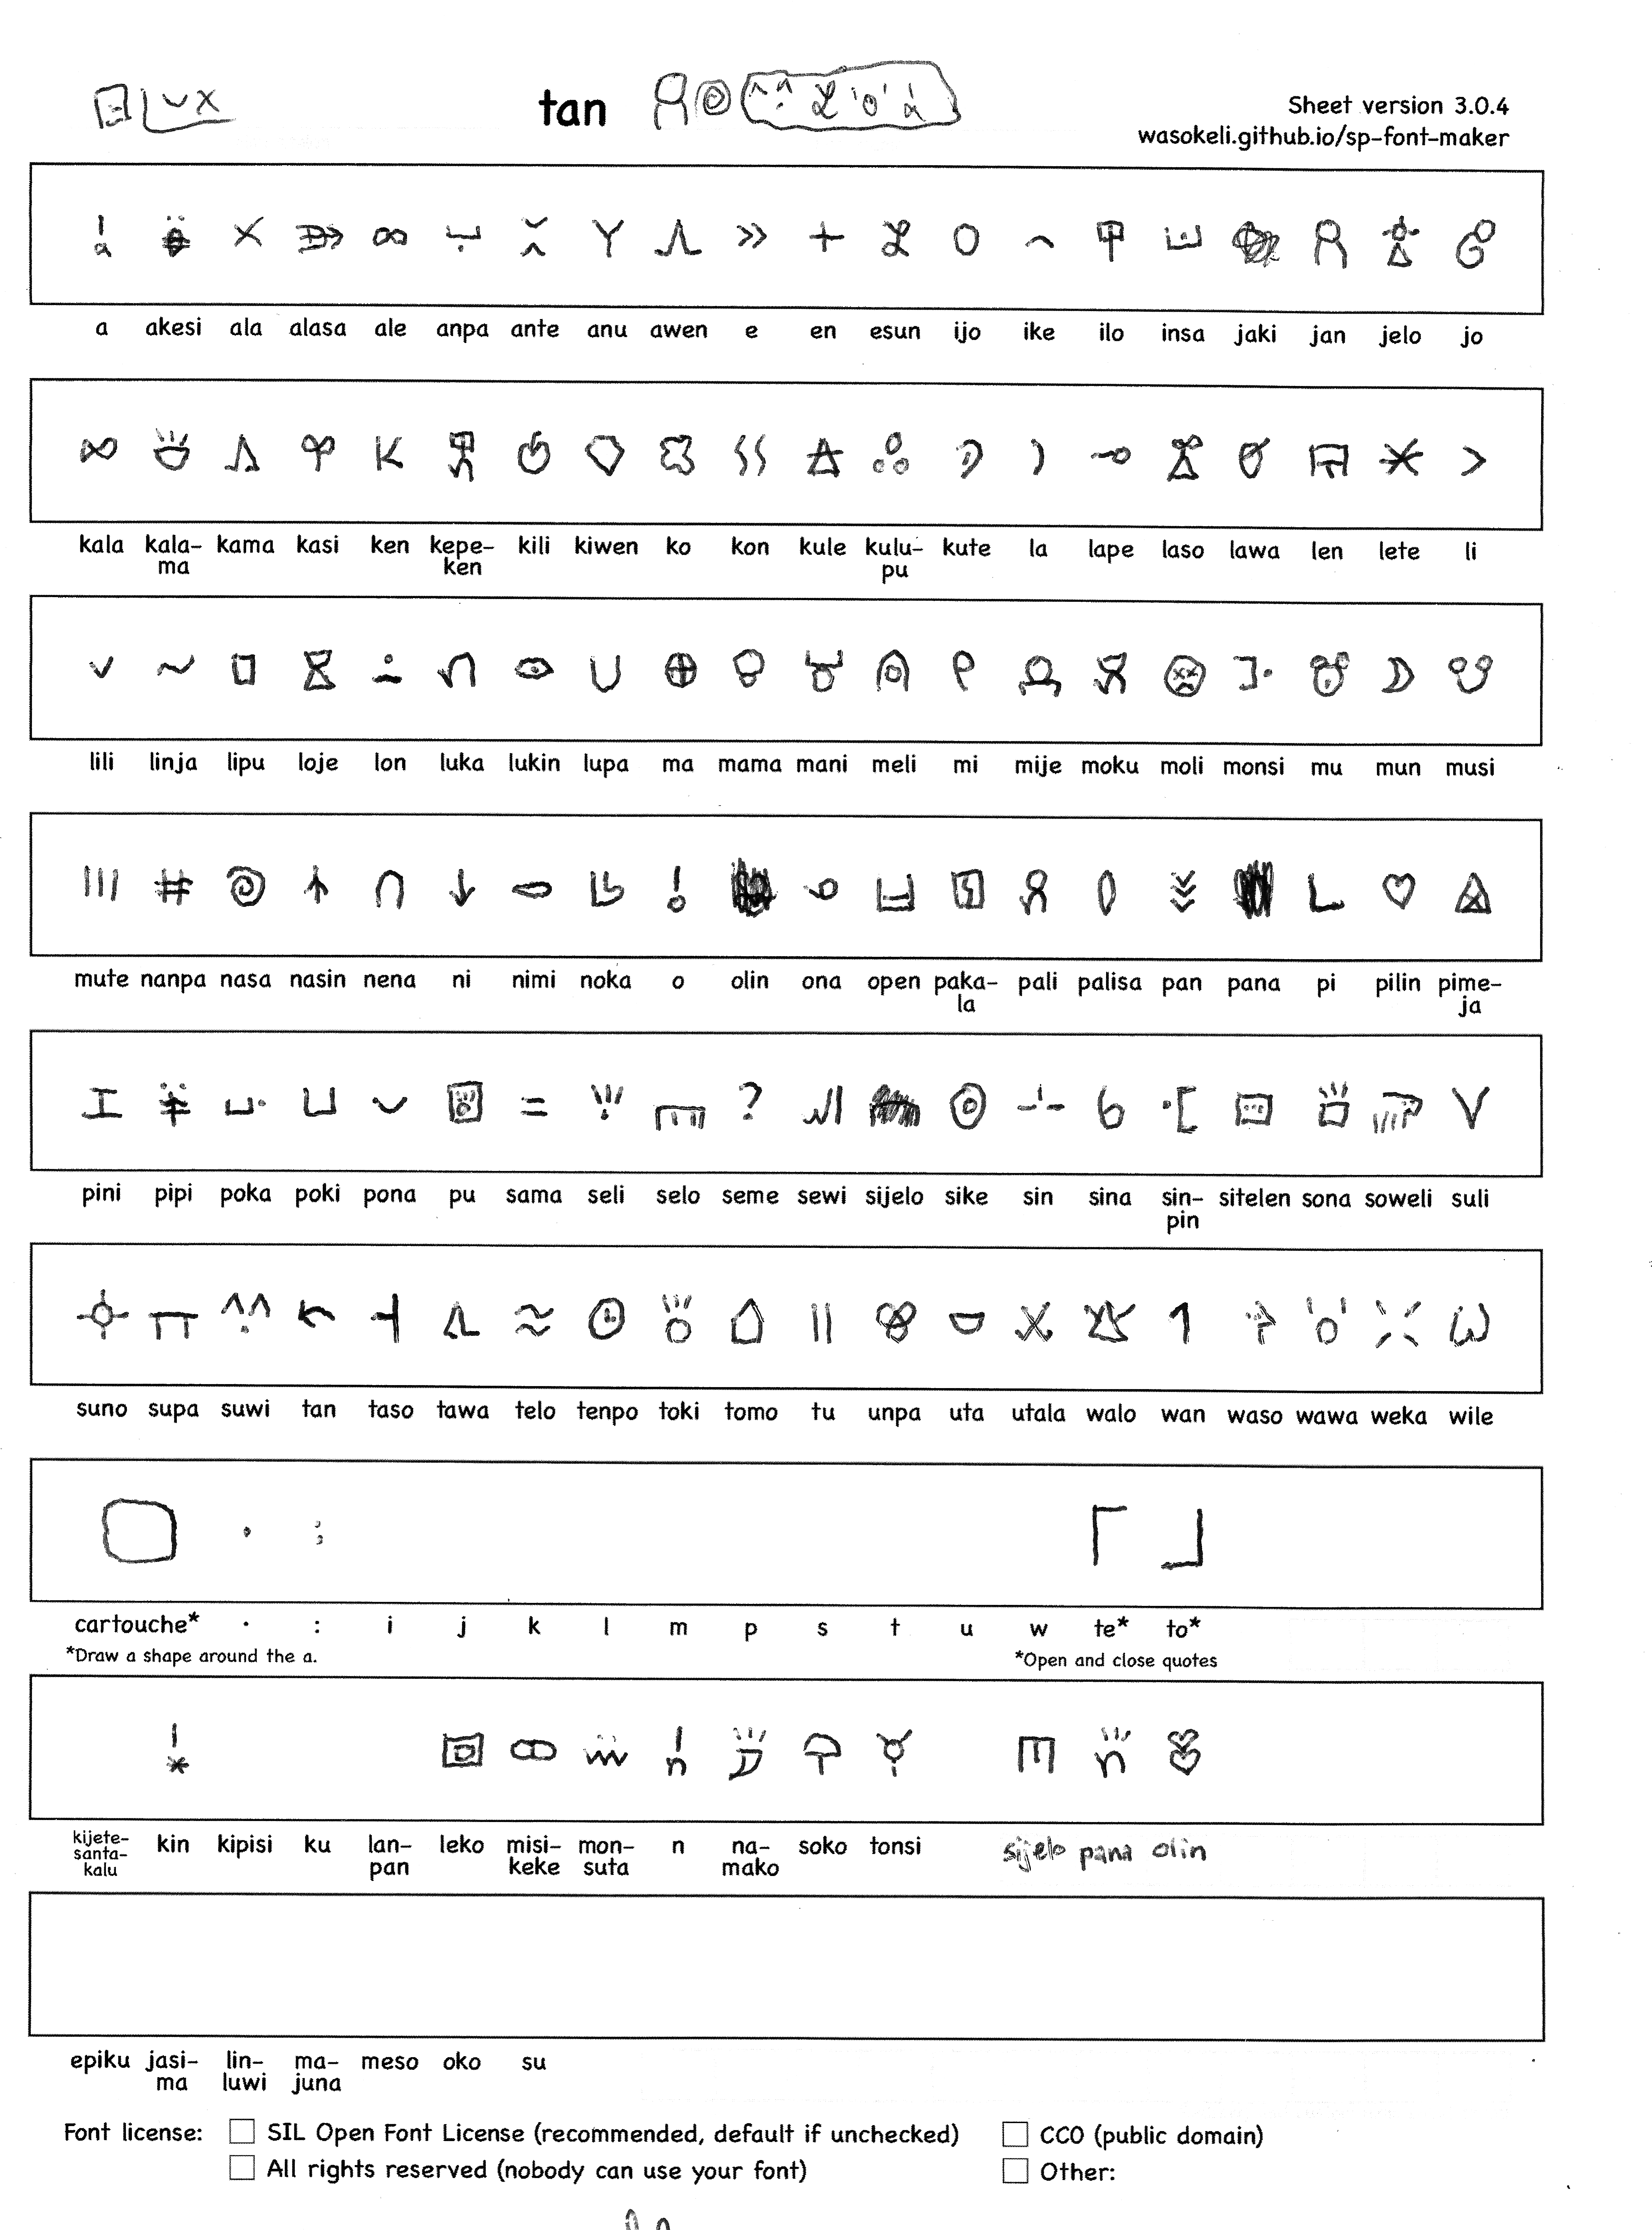 tan
Sheet version 3.0.4
wasokeli.github.io/sp-font-maker
a akesi ala alasa ale anpa ante anu awen e en esun ijo ike ilo insa jaki jan jelo jo
kala kala- kama kasi ken kepe- kili kiwen ko kon kule kulu- kute la lape laso lawa len lete li
ma ken pu
lili linja lipu loje lon luka lukin lupa ma mama mani meli mi mije moku moli monsi mu mun musi
mute nanpa nasa nasin nena ni nimi noka o olin ona open paka- pali palisa pan pana pi pilin pime-
la ja
pini pipi poka poki pona pu sama seli selo seme sewi sijelo sike sin sina sin- sitelen sona soweli suli
pin
suno supa suwi tan taso tawa telo tenpo toki tomo tu unpa uta utala walo wan waso wawa weka wile
cartouche* · : i j k l m p s t u w te* to*
*Draw a shape around the a. *Open and close quotes
kijete- kin kipisi ku lan- leko misi- mon- n na- soko tonsi sijelo pana olin
santa- pan keke suta mako
kalu
epiku jasi- lin- ma- meso oko su
ma luwi juna
Font license: SIL Open Font License (recommended, default if unchecked) CC0 (public domain)
All rights reserved (nobody can use your font) Other: